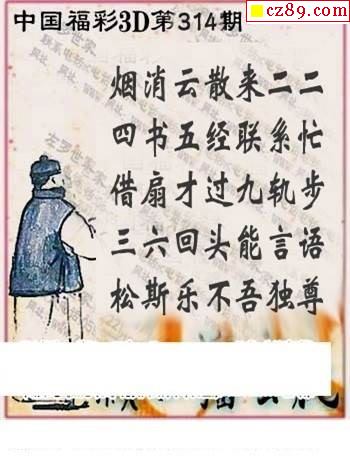 cz89.com
中国福彩3D第314期
烟消云散来二二
四书五经联系忙
借扇才过九轨步
三六回头能言语
松斯乐不吾独尊